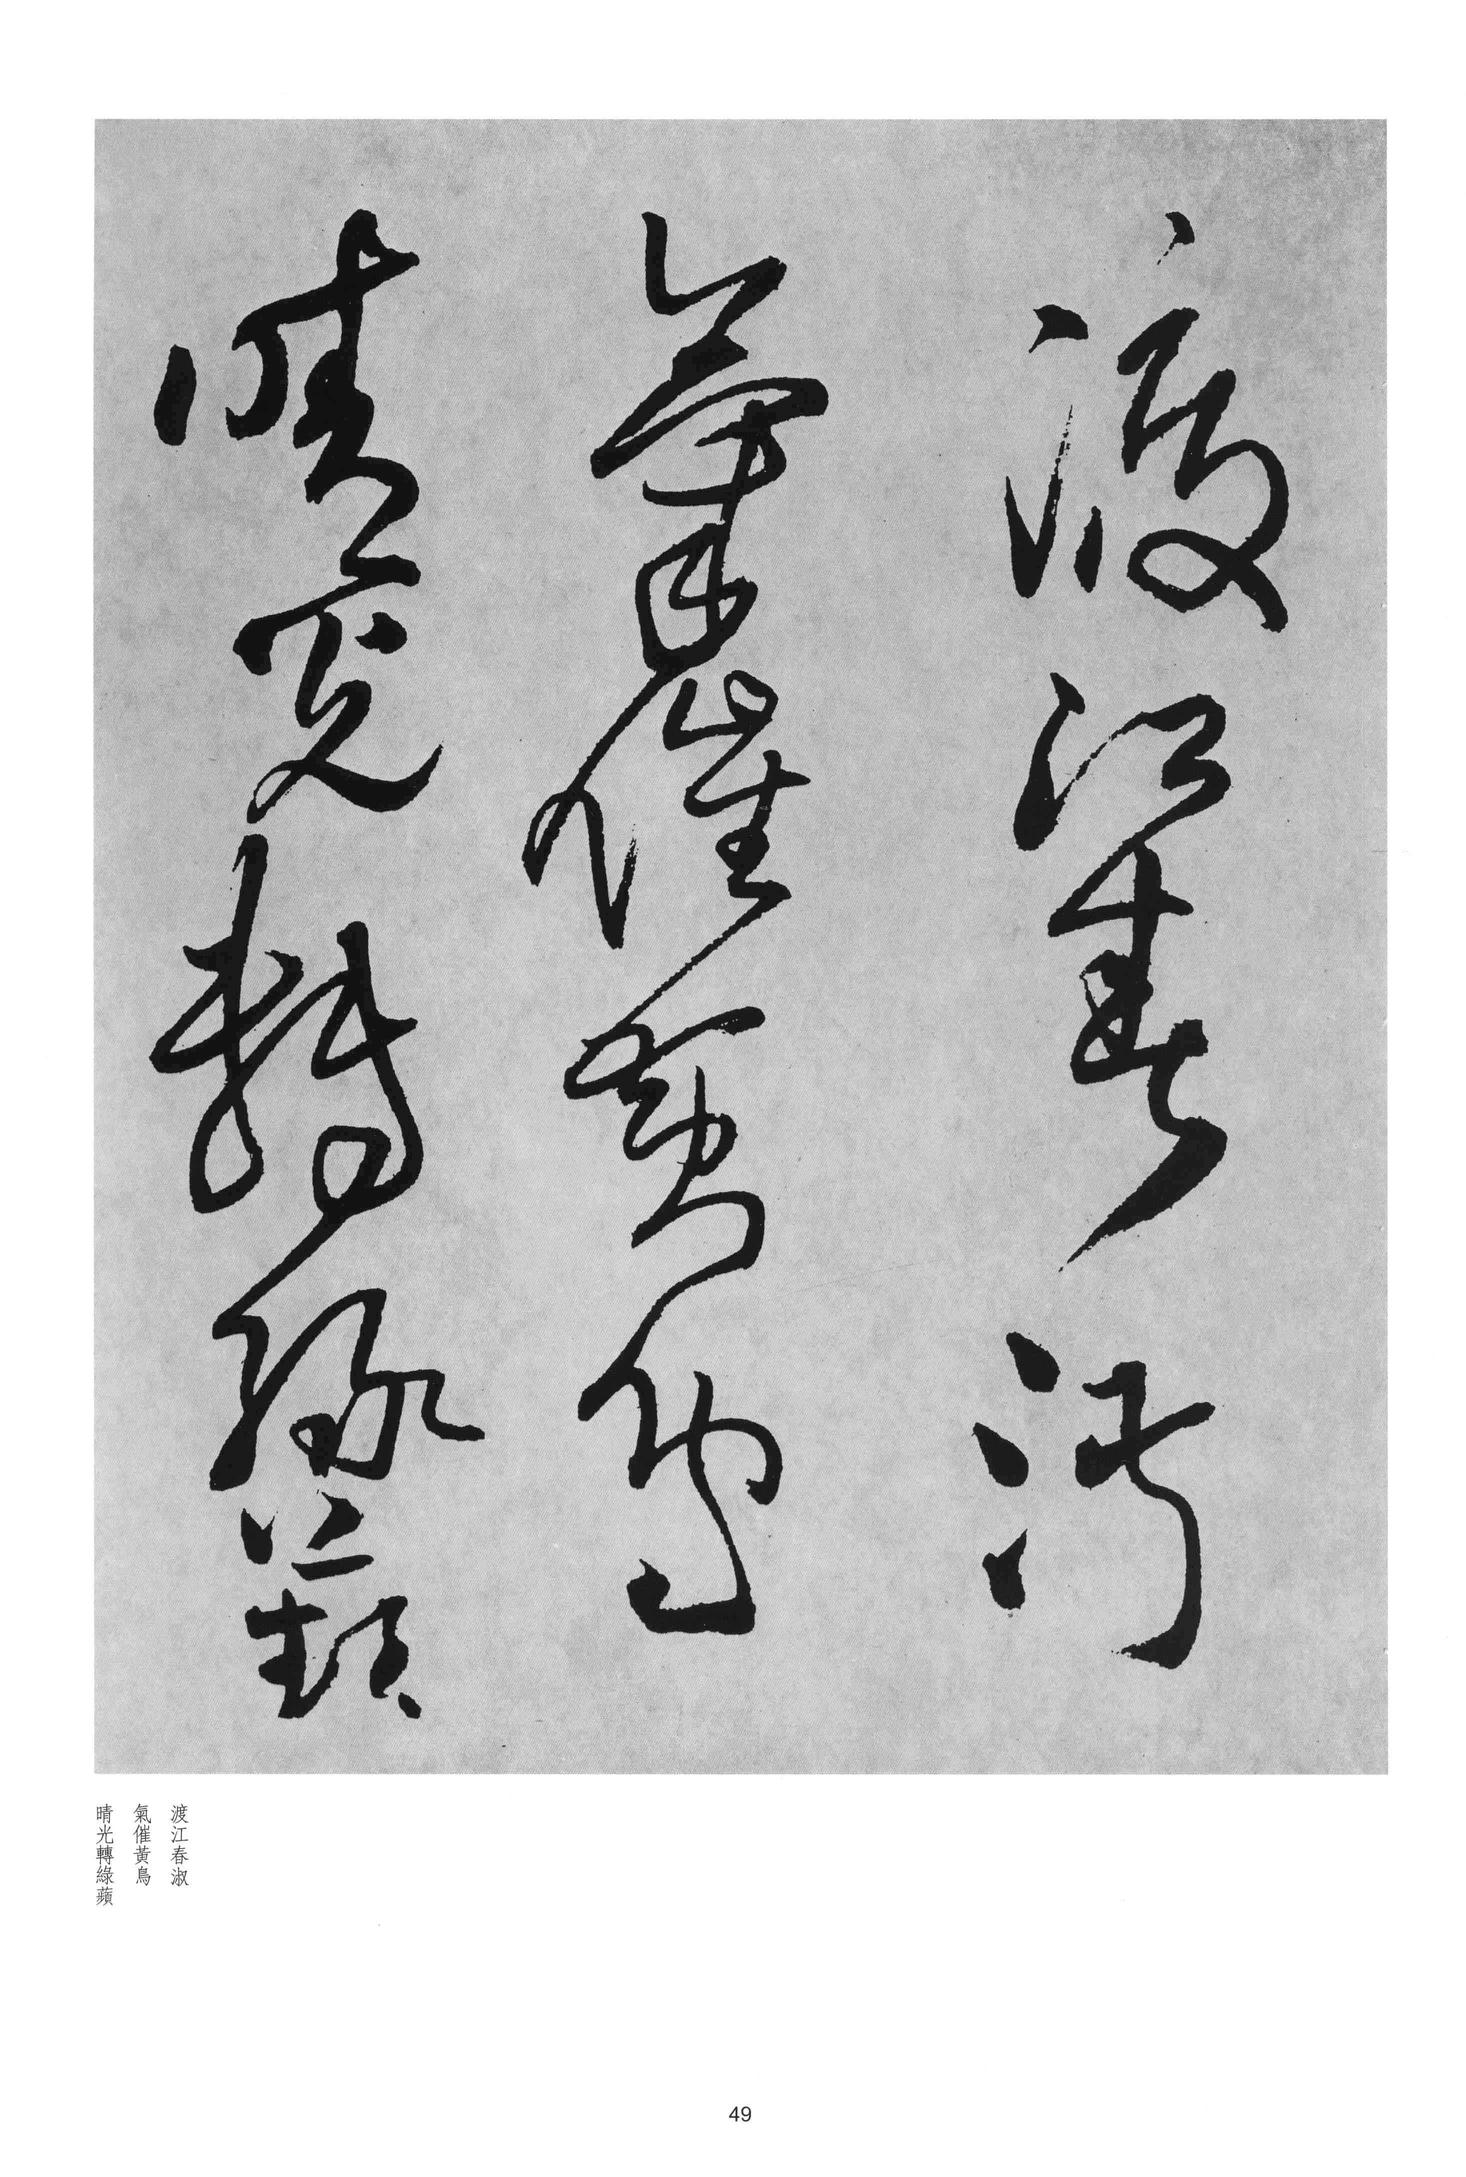 渡江春淑
氣催黃鳥
晴光轉綠蘋
渡江春淑
氣催黃鳥
晴光轉綠蘋
49